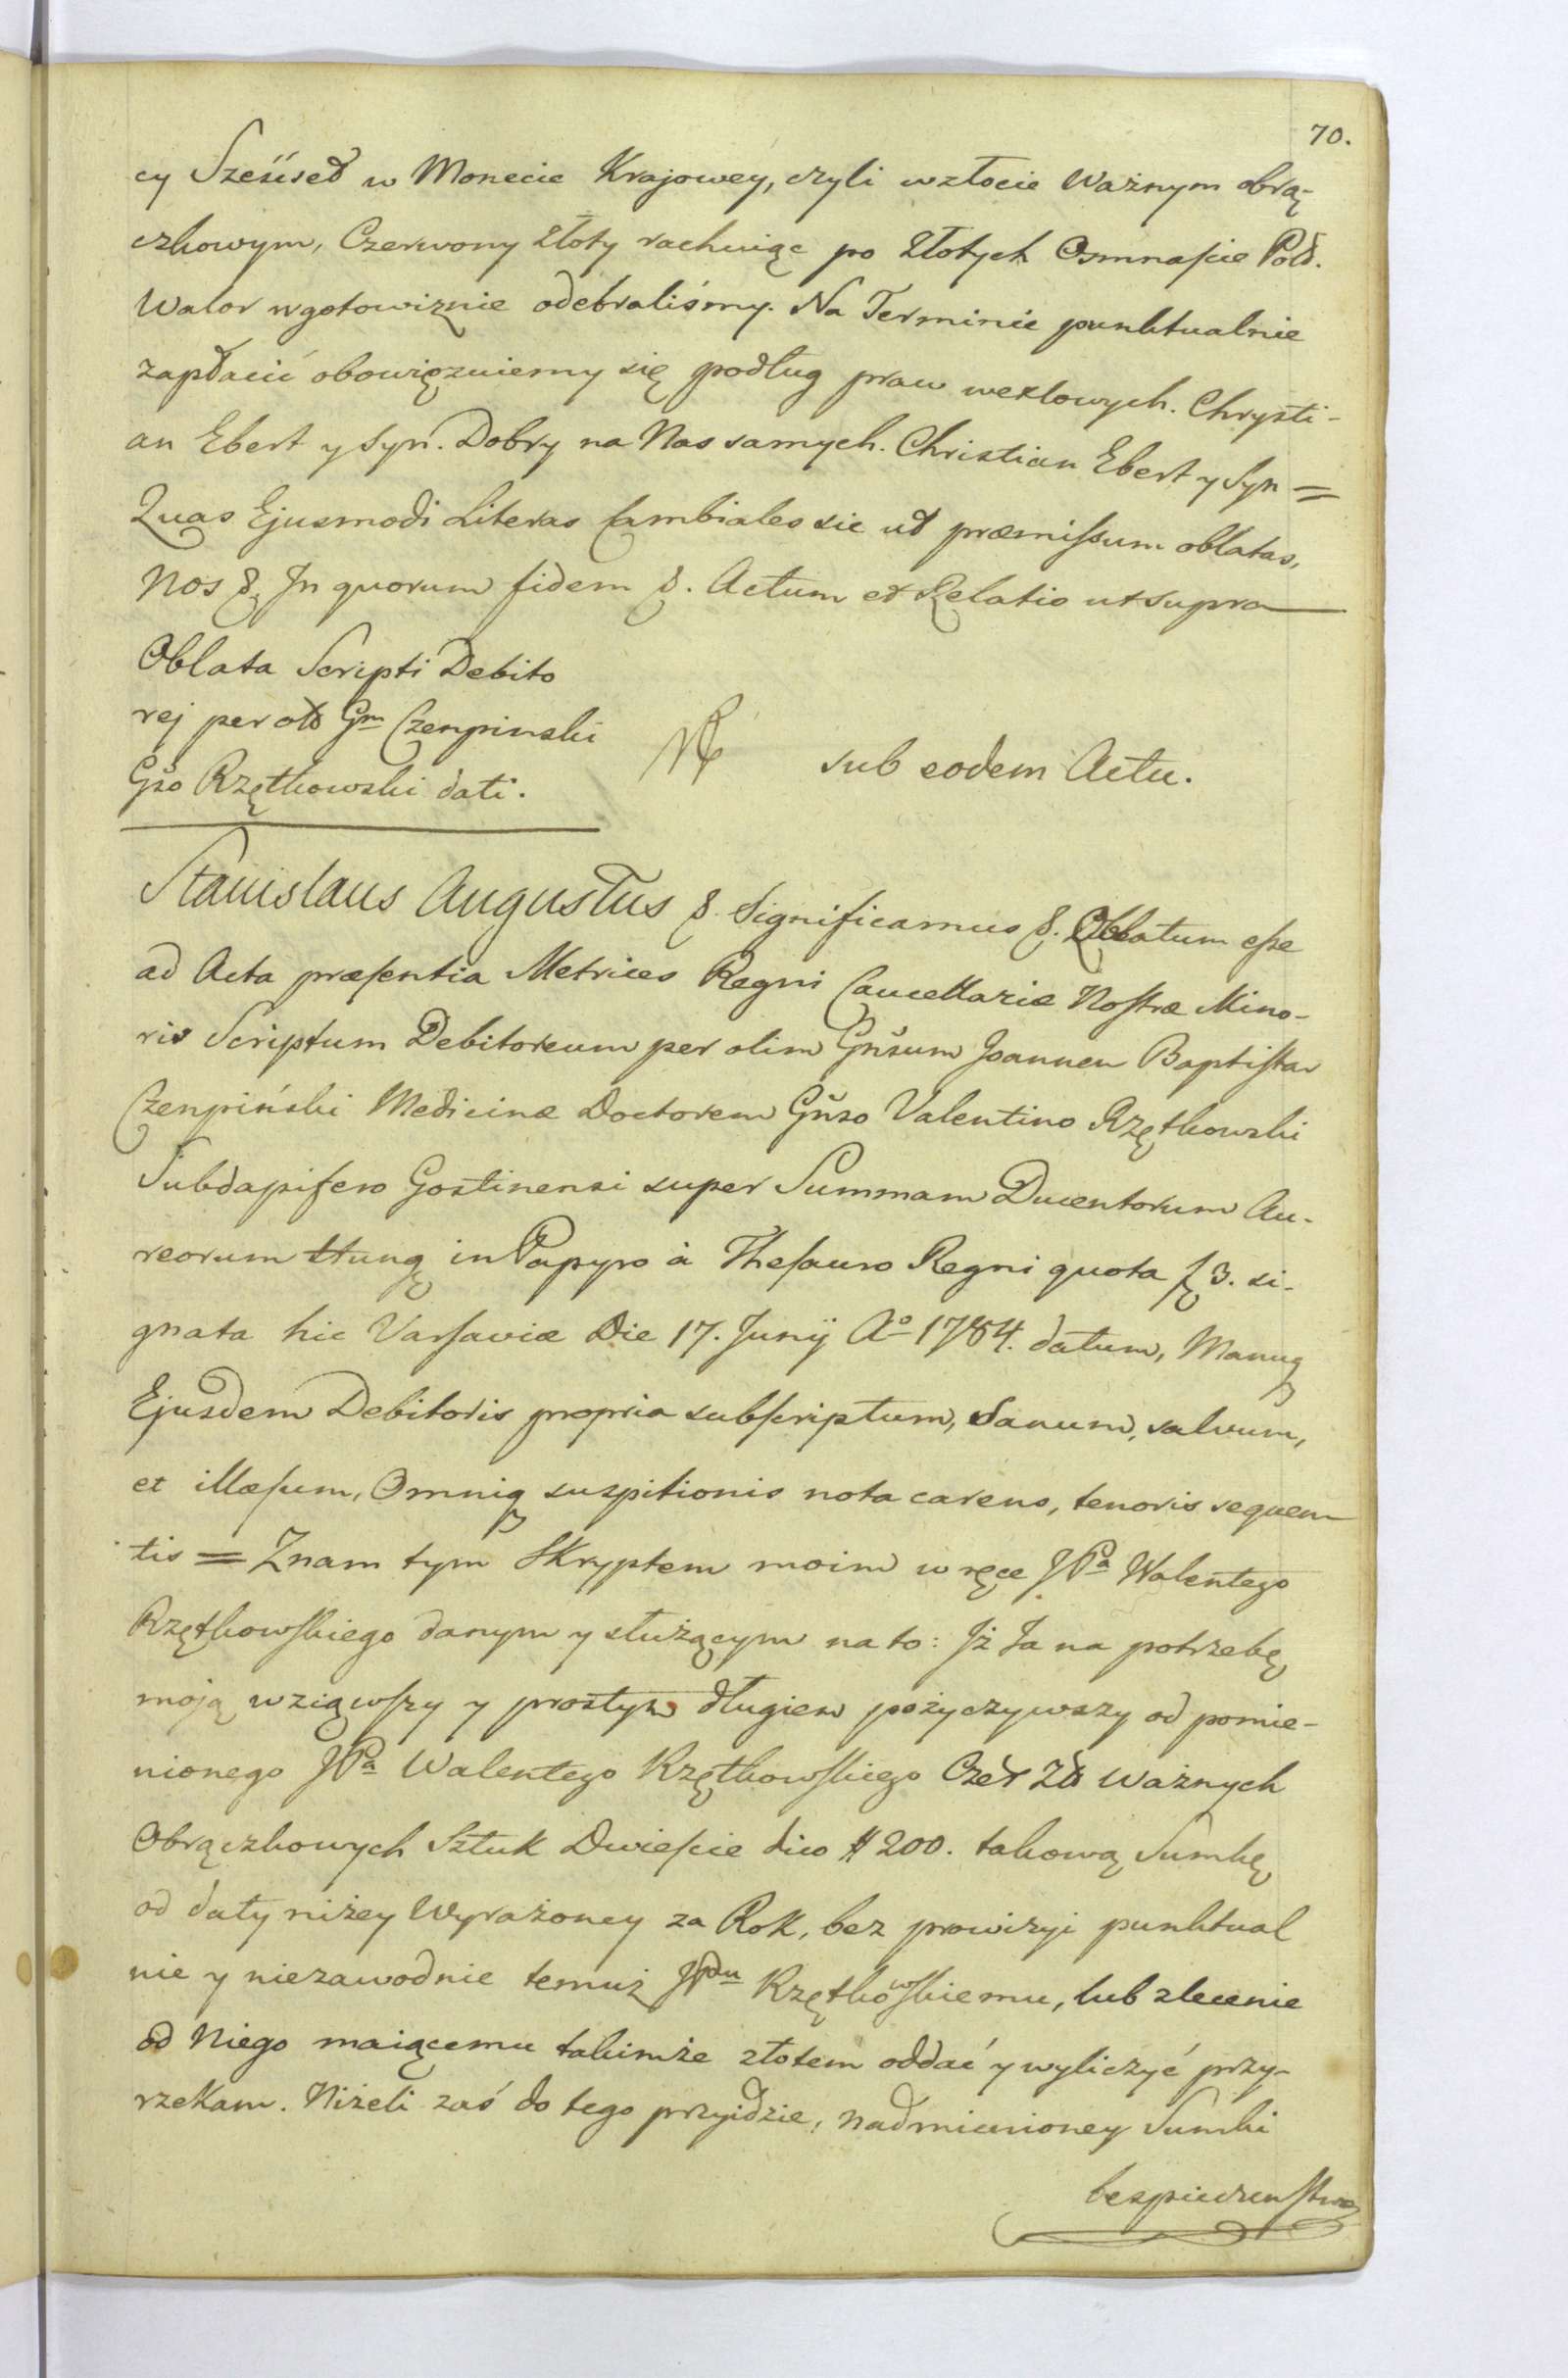 70.
cy Sześćset w Monecie Krajowey, czyli wzłocie Ważnym obrą-
czkowym, Czerwony Złoty rachuiąc po Złotych Osmnaście Pols.
Walor wgotowiznie odebraliśmy. Na Terminie punktualnie
zapłacić obowięzuiemy się podług praw wexlowych. Chrysti-
an Ebert y Syn. Dobry na Nas samych. Christian Ebert y Syn =
Quas Ejusmodi Literas Cambiales sic ut præmissum oblatas,
Nos &. In quorum fidem &. Actum et Relatio ut supra
Oblata Scripti Debito
rej per olō Gm Czenpinski
Gso Rzętkowski dati.
sub eodem Actu.
Stanislaus Augustus &. Significamus &. Oblatum esse
ad Acta præsentia Metrices Regni Cancellariæ Nostræ Mino-
ris Scriptum Debitoreum per olim Gnsum Joannem Baptistam
Czenpiński Medicinæ Doctorem Gnso Valentino Rzętkowski
Subdapifero Gostinensi super Summam Ducentorum Au-
reorum Hung in Papyro à Thesauro Regni quota 3. si-
gnata hic Varsaviæ Die 17. Junij Ao 1784. datum, Manuq
Ejusdem Debitoris propria subscriptum, Sanum, salvum,
et illæsum, Omniq suspitionis nota carens, tenoris sequen
tis = Znam tym Skryptem moim w ręce JPa Walentego
Rzętkowskiego danym y służącym na to: Iż Ja na potrzebę
moją wziąwszy y prostym długiem pożyczywszy od pomie-
nionego JPa Walentego Rzętkowskiego Czer Zł Ważnych
Obrączkowych Sztuk Dwieście dico # 200. takową Sumkę
od daty niżey Wyrażoney za Rok, bez prowizyi punktual
nie y niezawodnie temuż JPdu Rzętkowskiemu, lub zlecenie
od Niego maiącemu takimże złotem oddać y wyliczyć przy-
rzekam. Niżeli zaś do tego przyidzie, nadmienioney Sumki
bezpieczenstwo